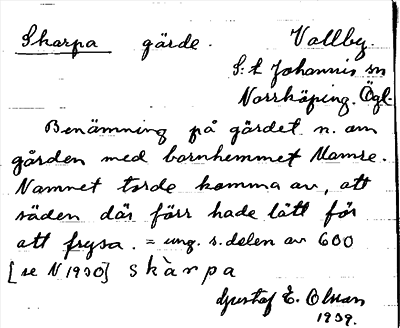 Skarpa gärde. Vallby.
S:t Johannis sn
Norrköping. Ögl.
Benämning på gärdet n. om
gården med barnhemmet Mamre.
Namnet torde komma av, att
säden där förr hade lätt för
att frysa. = ung. s. delen av 600
[se N 1930] skàrpa
Gustaf E. Olsson
1939.